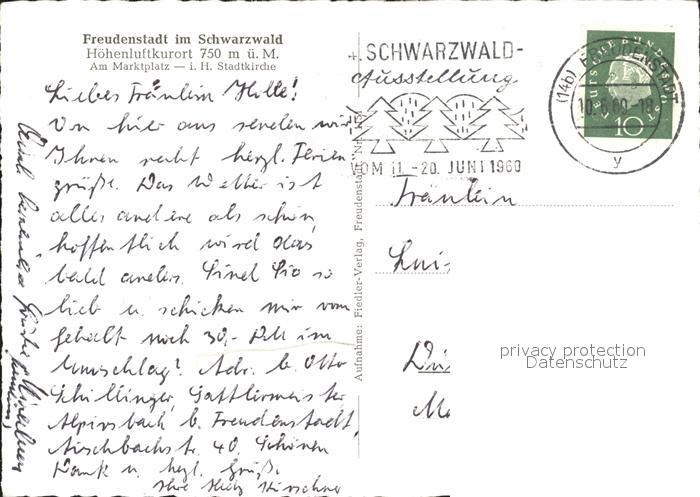 Freudenstadt im Schwarzwald
Höhenluftkurort 750 m ü. M.
Am Marktplatz — i. H. Stadtkirche
Liebes Fräulein Hille!
Von hier aus senden wir
Ihnen recht herzl. Ferien
grüße. Das Wetter ist
alles andere als schön,
hoffentlich wird das
bald anders. Sind Sie so
lieb u. schicken mir vom
Gehalt noch 30,- DM im
Umschlag? Adr. b. Otto
Schillinger, Sattlermeister
Alpirsbach b. Freudenstadt,
Aischbachstr. 40. Schönen
Dank u. herzl. Grüße
Ihre
Aufnahme: Fiedler-Verlag, Freudenstadt
SCHWARZWALD-
Ausstellung
VOM 11.-20. JUNI 1960
(14b) FREUDENSTADT
10.6.60-18
y
DEUTSCHE BUNDESPOST
10
Fräulein
privacy protection
Datenschutz